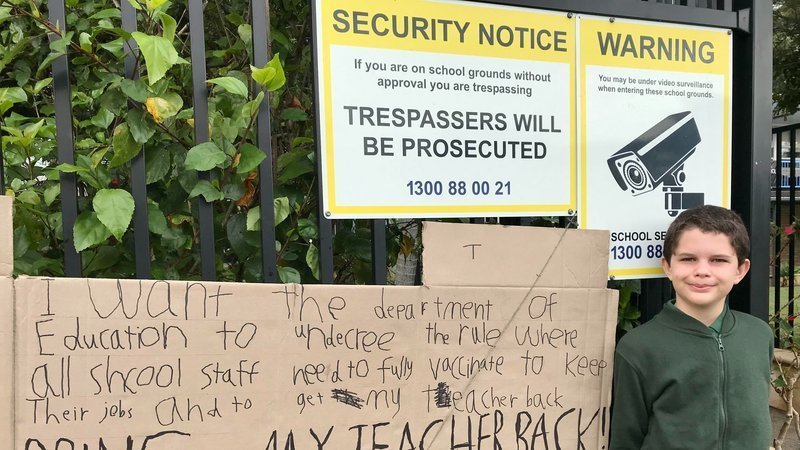 SECURITY NOTICE
If you are on school grounds without
approval you are trespassing
TRESPASSERS WILL
BE PROSECUTED
1300 88 00 21
WARNING
You may be under video surveillance
when entering these school grounds.
SCHOOL
1300 88
T
I want the department of
Education to undecree the rule where
all shcool staff need to fully vaccinate to keep
Their jobs and to get my Teacher back
MY TEACHER BACK!